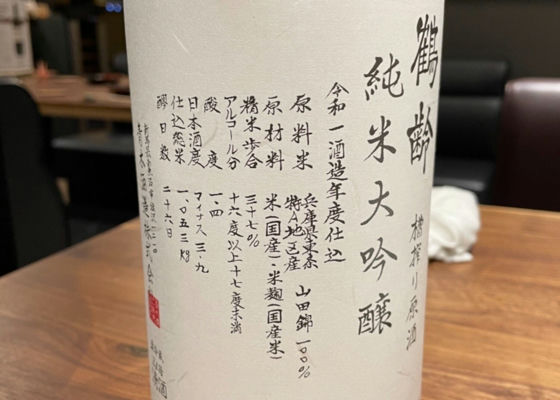 鶴齢 槽搾り原酒
純米大吟醸
令和一酒造年度仕込
原料米 兵庫県東条特A地区産 山田錦 一〇〇%
原材料 米(国産)・米麹(国産米)
精米歩合 三十七%
アルコール分 十六度以上十七度未満
酸度 一.四
日本酒度 マイナス三.九
仕込総米 一、〇五三kg
醪日数 二十六日
青木酒造株式会社